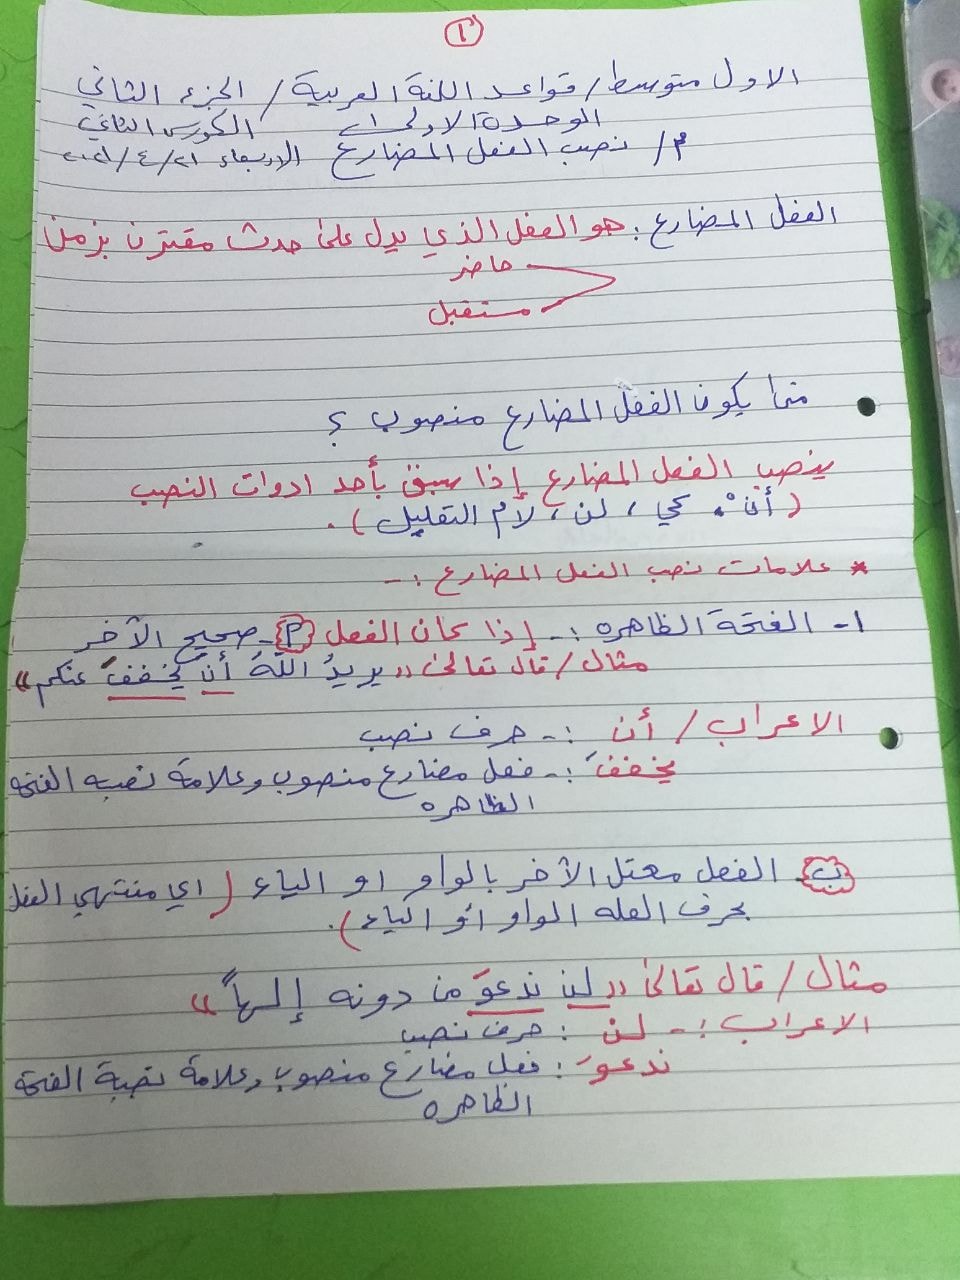 ١
الاول متوسط / قواعد اللغة العربية / الجزء الثاني
الوحدة الاولى الكورس الثاني
م/ نصب الفعل المضارع الاربعاء ٢٠٢١/٤/٢١
الفعل المضارع : هو الفعل الذي يدل على حدث مقترن بزمن
حاضر
مستقبل
متى يكون الفعل المضارع منصوب ؟
ينصب الفعل المضارع إذا سبق بأحد ادوات النصب
( أنْ ، كي ، لن ، لام التعليل ) .
* علامات نصب الفعل المضارع :-
١- الفتحة الظاهره :- إذا كان الفعل {أ} - صحيح الآخر
مثال / قال تعالى (( يريدُ اللهُ أن يخففَ عنكم ))
الاعراب / أن :- حرف نصب
يخففَ :- فعل مضارع منصوب وعلامة نصبه الفتحة
الظاهره
ب- الفعل معتل الآخر بالواو او الياء ( اي منتهي الفعل
بحرف العله الواو أو الياء ) .
مثال / قال تعالى (( لن ندعوَ من دونه إلهاً ))
الاعراب :- لن : حرف نصب
ندعوَ : فعل مضارع منصوب وعلامة نصبة الفتحة
الظاهره